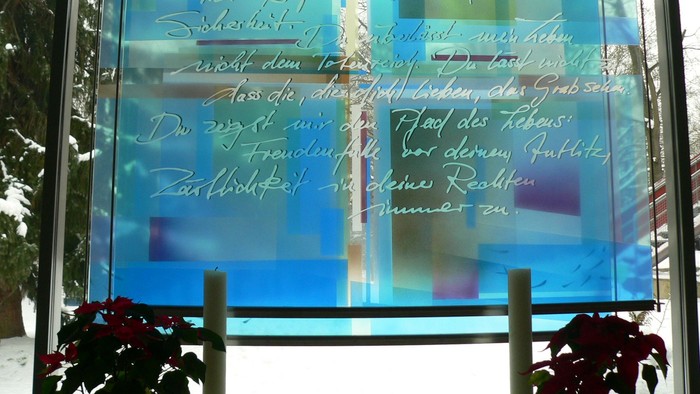 Sicherheit.
Du überlässt mein Leben
nicht dem Totenreich. Du lässt nicht zu,
dass die, die dich lieben, das Grab sehen.
Du zeigst mir den Pfad des Lebens:
Freudenfülle vor deinem Antlitz,
Zärtlichkeit in deiner Rechten
immer zu.